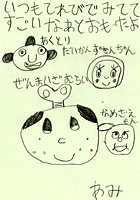 いつもてれびでみてて
すごいなぁとおもたよ
あくとり
たいかんずきんちゃん
ぜんまいざむらい
かめざえもん
あみ